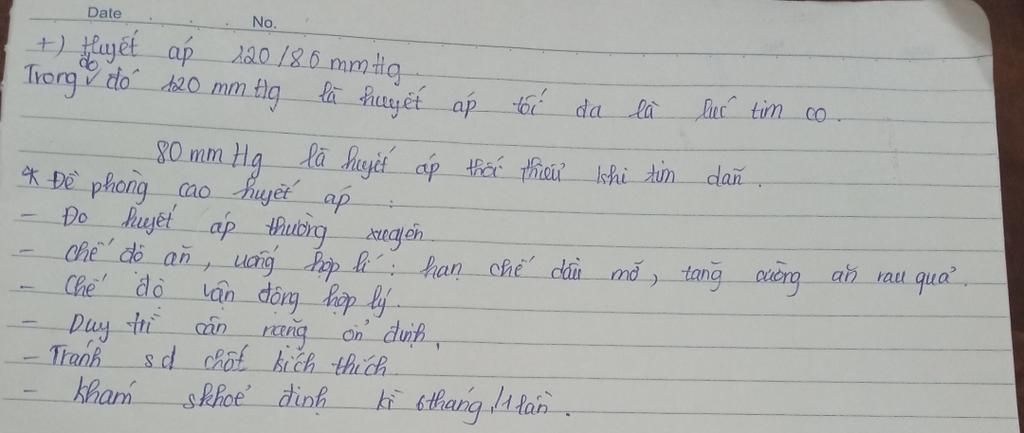 Date No.
+) Huyết áp 120/80 mmHg.
Trong đó đó 120 mmHg là huyết áp tối đa là lúc tim co.
80 mmHg là huyết áp thối thiểu khi tim dãn.
* Đề phòng cao huyết áp :
- Đo huyết áp thường xuyên
- chế độ ăn, uống hợp lí : hạn chế dầu mỡ, tăng cường ăn rau quả.
- Chế độ vận động hợp lý.
- Duy trì cân nặng ổn định.
- Tránh sd chất kích thích
- khám skhoẻ định kì 6tháng/1 lần.